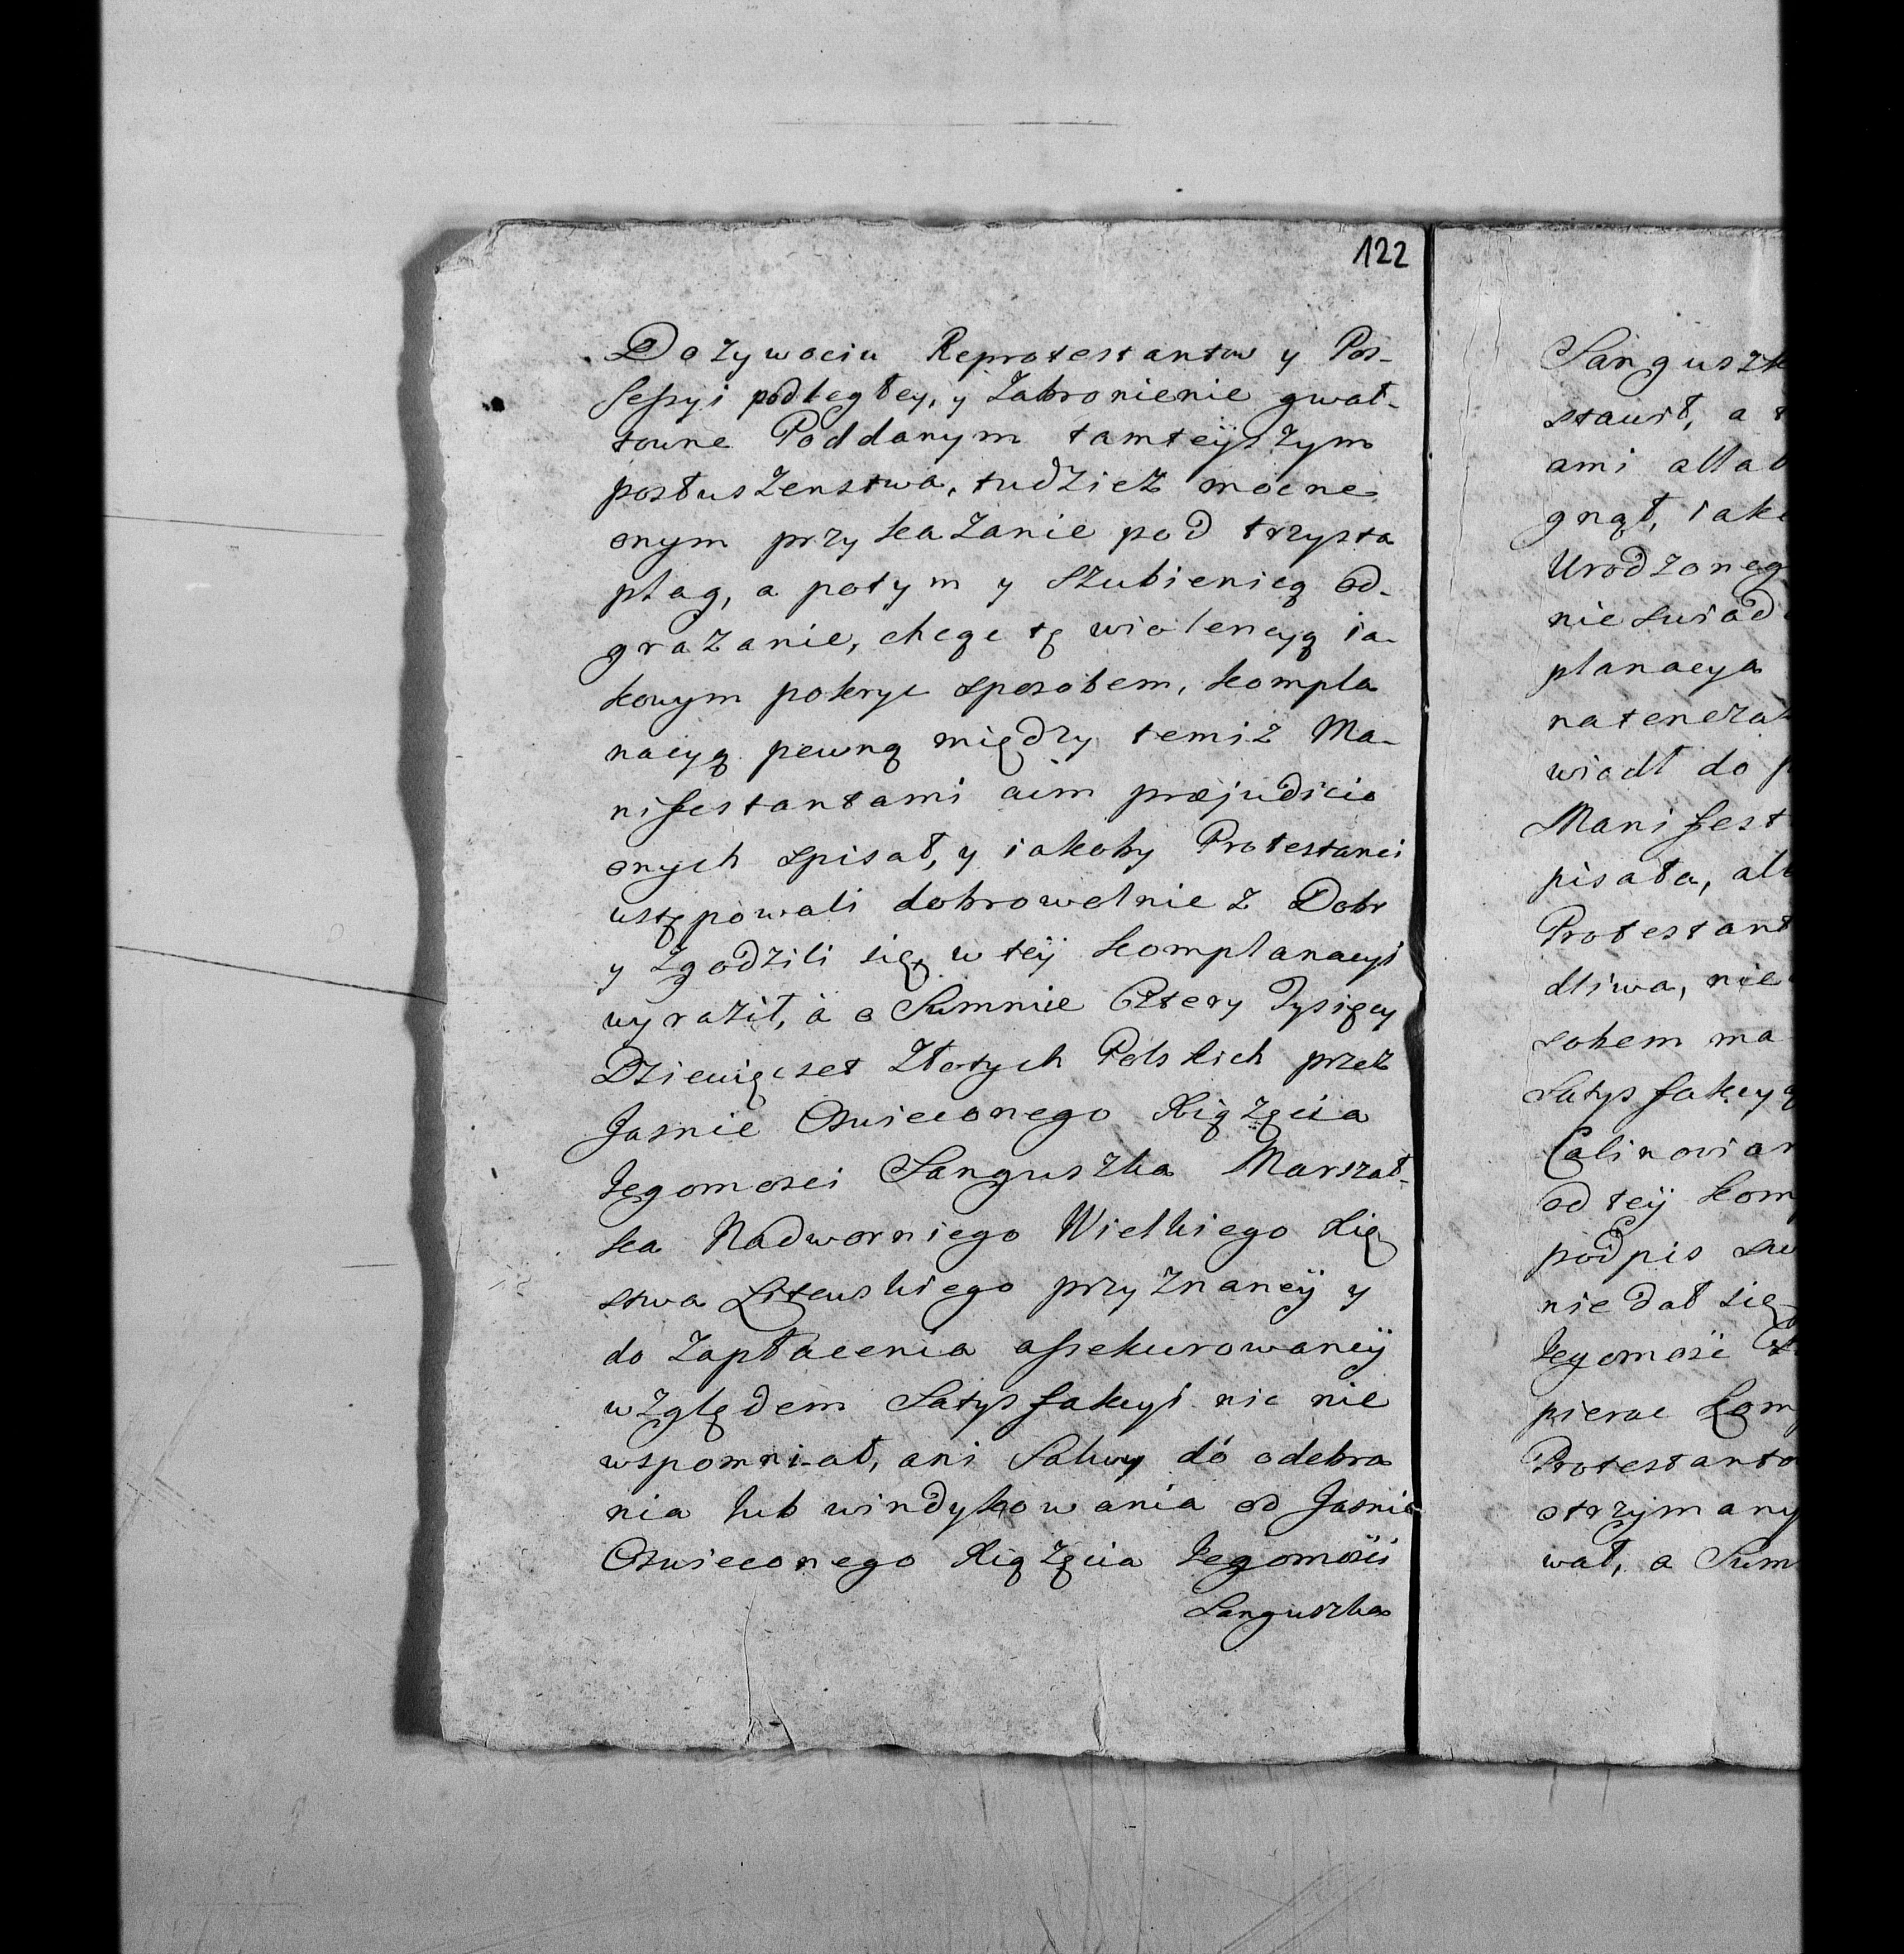 122
Dożywociu Reprotestantow y Pos-
sessyi podległey, y Zabronienie gwał-
towne Poddanym tamteÿszym
posłuszenstwa, tudziesz mocne
onym przykazanie pod trzysta
plag, a potym y Szubienicą od-
grazanie, chcąc tę wiolencyą ia-
kowym pokryc sposobem, kompla
nacyą pewną między temiż Ma-
nifestantami cum præjudicio
onych spisał, y iakoby Protestanci
ustępowali dobrowolnie z Dobr
y Zgodzili się, w teÿ komplanacyi
wyraził, à o Summie Cztery Tysięcy
Dziewięcset Złotych Polskich przez
Jasnie Oswieconego Xiążęcia
Jegomosci Sanguszka Marszał-
ka Nadworniego Wielkiego Xię
stwa Litewskiego przyznaneÿ y
do Zapłacenia assekurowaneÿ
względem Satysfakcyi nic nie
wspomniał, ani Salwy dó odebra
nia lub windykowania od Jasnie
Oswieconego Xiążęcia Jegomości
Sanguszka
Sanguszk
stawił, a t
ami allab
gnął, iako
Urodzoneg
nie swiad
planacya
natenczas
wiodł do p
Manifest
pisała, alb
Protestant
dliwa, nie
sobem ma
Satysfakcyą
Calinowian
od teÿ kom
podpis sw
nie dał się
Jegomość
pierac kom
Protestanto
otrzymany
wał, a Sum